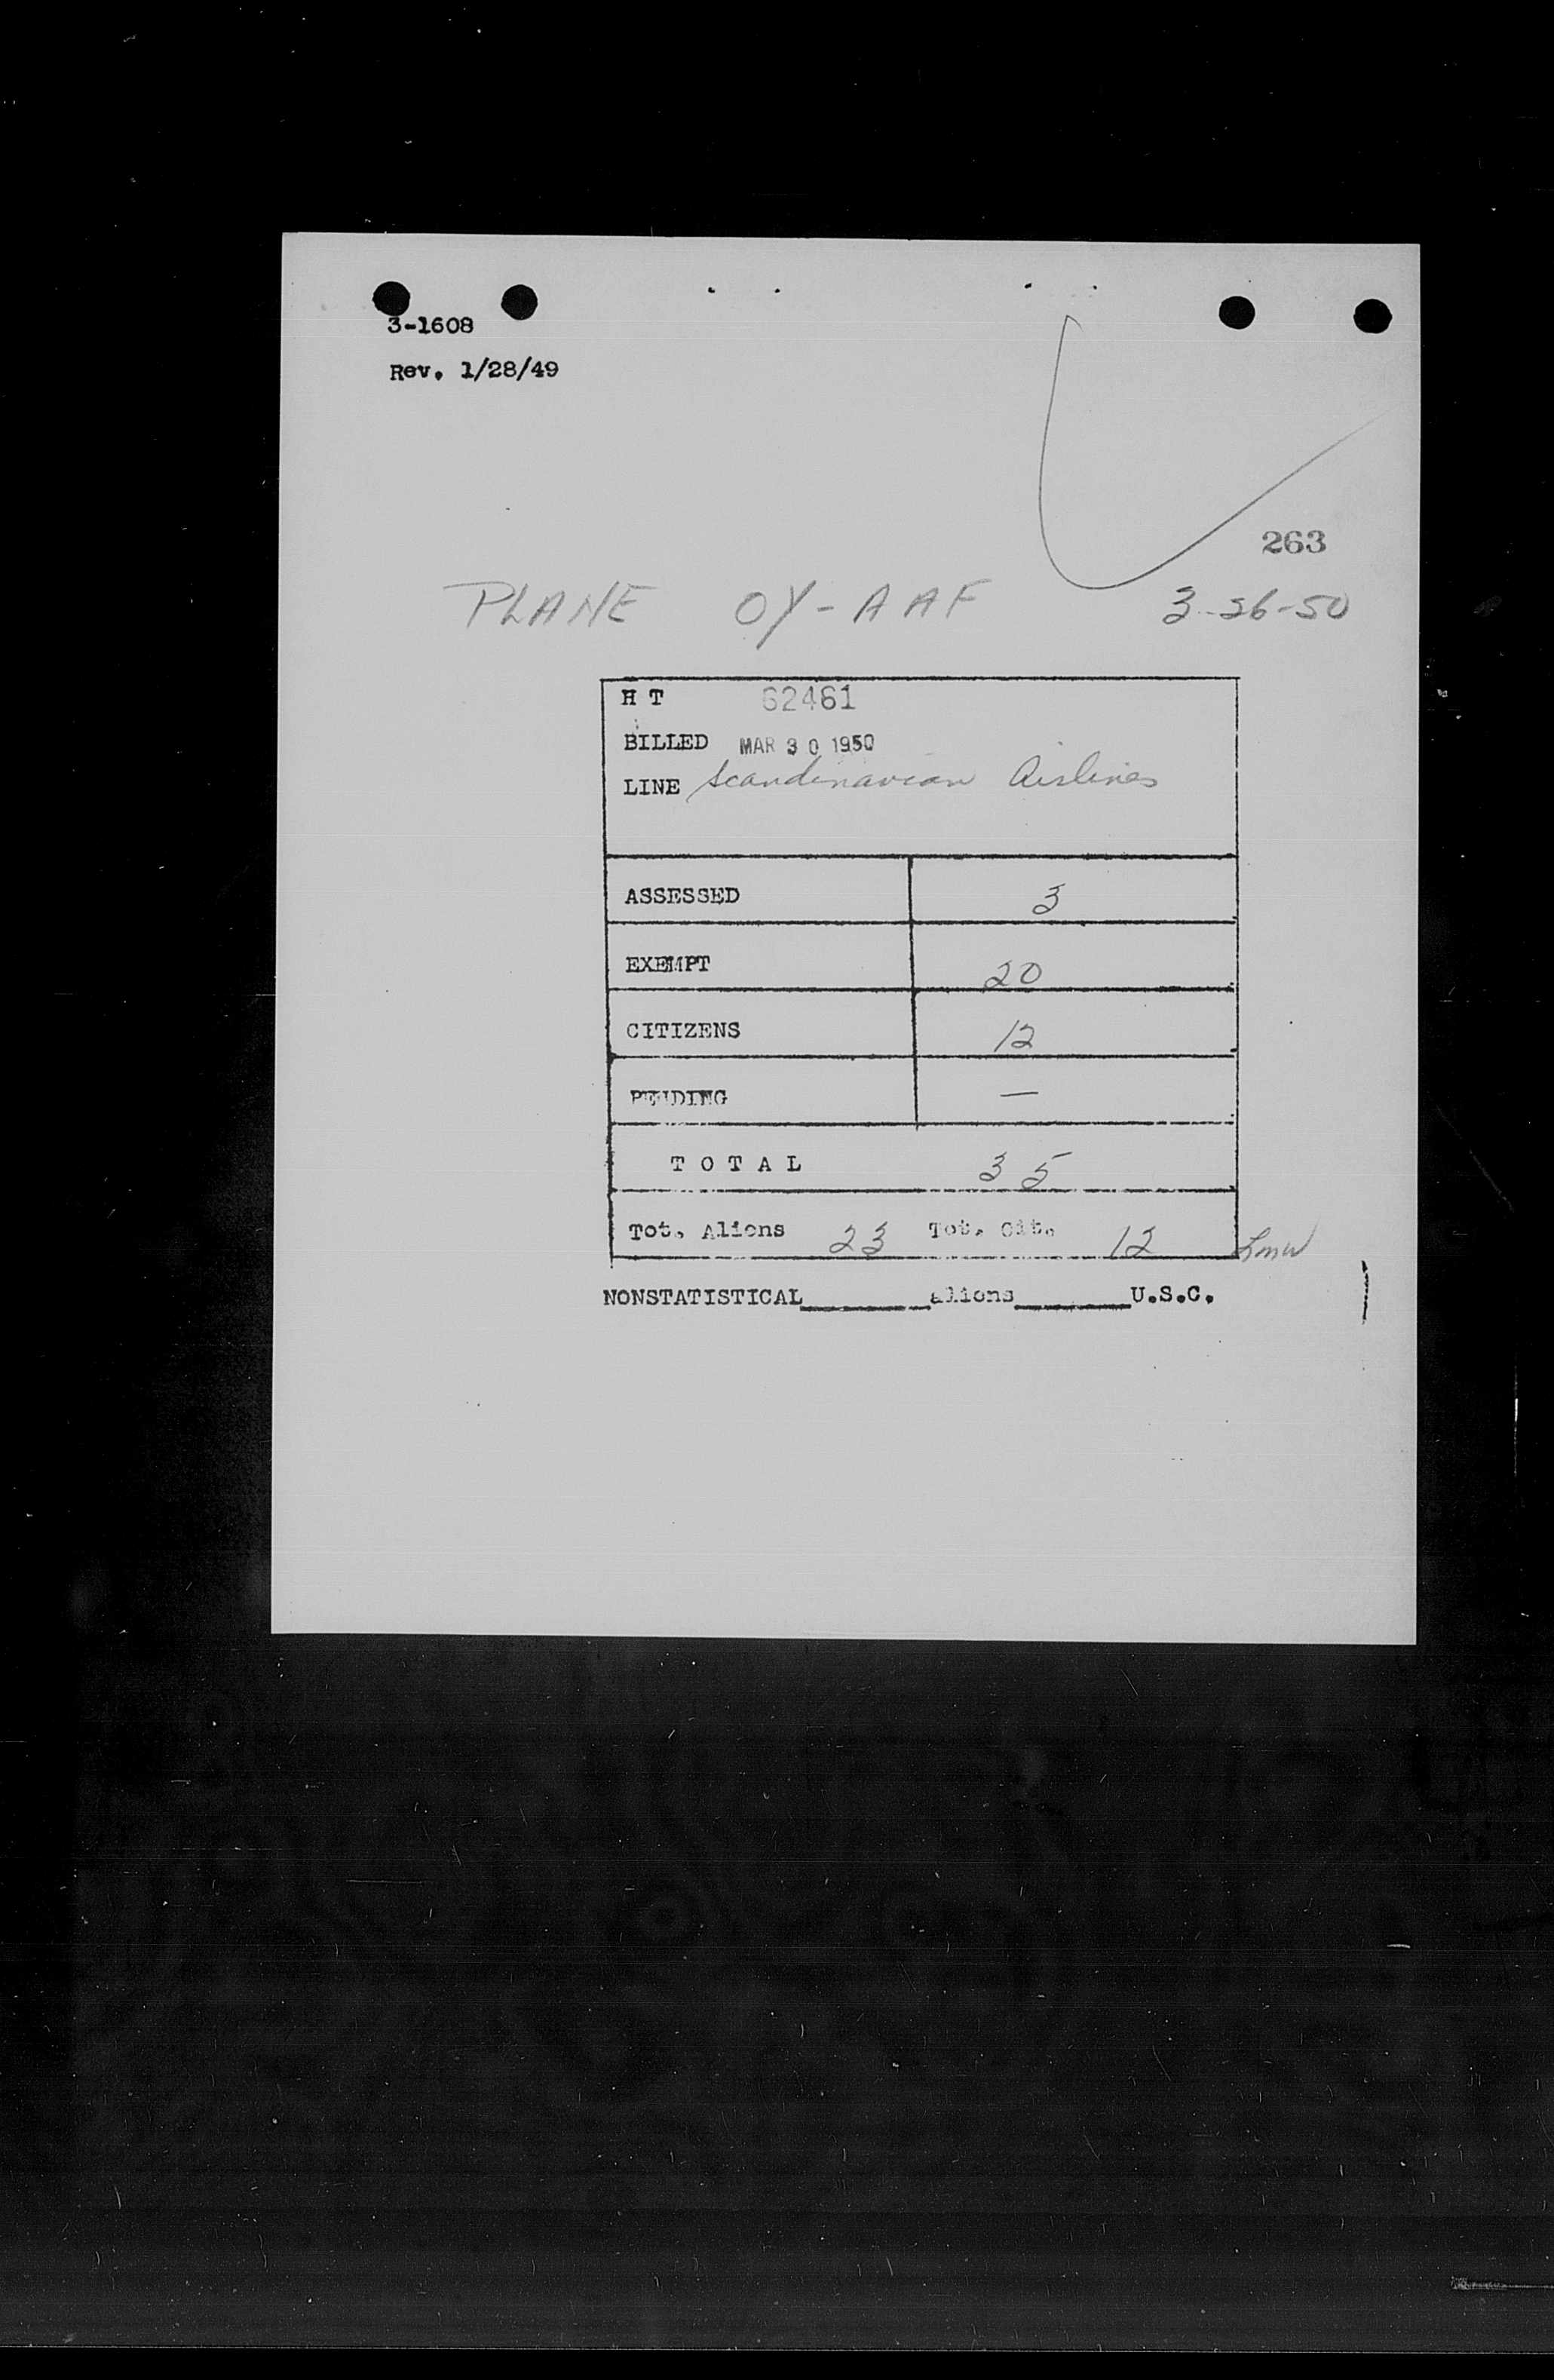 3-1608
Rev. 1/28/49
263
PLANE OY-AAF 3-26-50
H T 62461
BILLED MAR 30 1950
LINE Scandinavian Airlines
ASSESSED 3
EXEMPT 20
CITIZENS 12
PENDING —
T O T A L 35
Tot. Aliens 23 Tot. Cit. 12
NONSTATISTICAL________aliens________U.S.C.